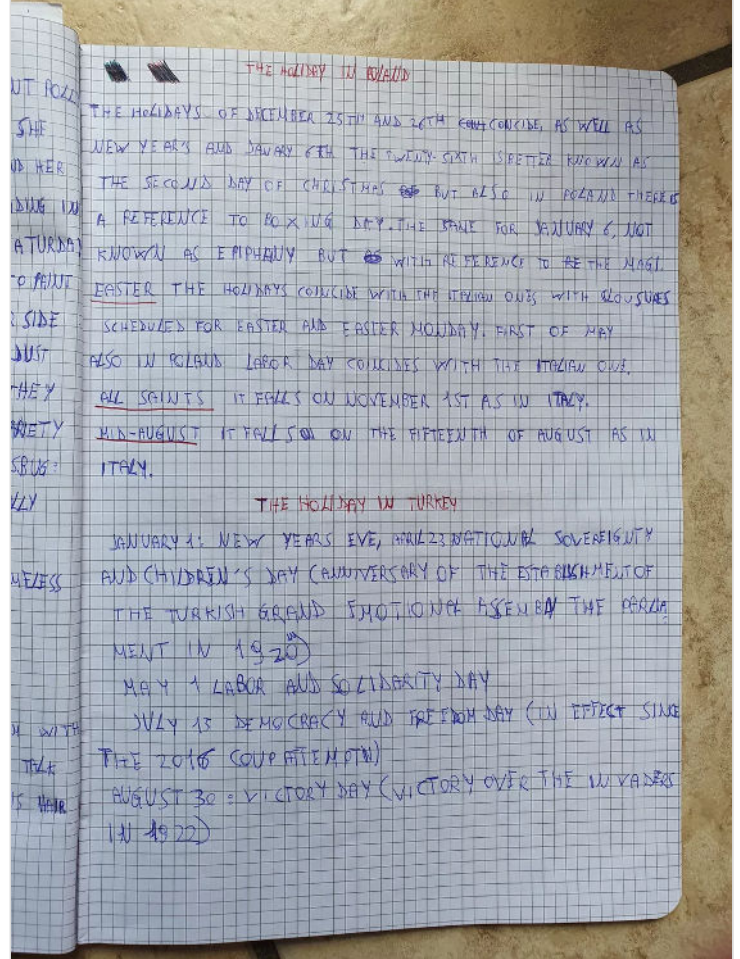 THE HOLIDAY IN POLAND
THE HOLIDAYS OF DECEMBER 25TH AND 26TH CONCIDE, AS WELL AS
NEW YEAR'S AND JANARY 6TH THE TWENTY-SIXTH IS BETTER KNOWN AS
THE SECOND DAY OF CHRISTMAS BUT ALSO IN POLAND THERE IS
A REFERENCE TO BOXING DAY. THE SANE FOR JANUARY 6, NOT
KNOWN AS EPIPHANY BUT WITH REFERENCE TO THE MAGI.
EASTER THE HOLIDAYS COINCIDE WITH THE ITALIAN ONES WITH SLOUSURES
SCHEDULED FOR EASTER AND EASTER MONDAY. FIRST OF MAY
ALSO IN POLAND LABOR DAY COINCIDES WITH THE ITALIAN ONE.
ALL SAINTS IT FALLS ON NOVEMBER 1ST AS IN ITALY.
MID-AUGUST IT FALLS ON THE FIFTEENTH OF AUGUST AS IN
ITALY.
THE HOLIDAY IN TURKEY
JANUARY 1: NEW YEARS EVE, APRIL 23 NATIONAL SOVEREIGNTY
AND CHILDREN'S DAY (ANNIVERSARY OF THE ESTABLISHMENT OF
THE TURKISH GRAND EMOTIONAL ASSEMBLY THE PARLIA
MENT IN 1920)
MAY 1 LABOR AND SOLIDARITY DAY
JULY 15 DEMOCRACY AND FREEDOM DAY (IN EFFECT SINCE
THE 2016 COUP ATTEMPT)
AUGUST 30: VICTORY DAY (VICTORY OVER THE INVADERS
IN 1922)
SHE
HER
DING IN
ATURDAY
TO PAINT
SIDE
DUST
THEY
SBUG:
LLY
MELESS
WITH
TALK
HAIR